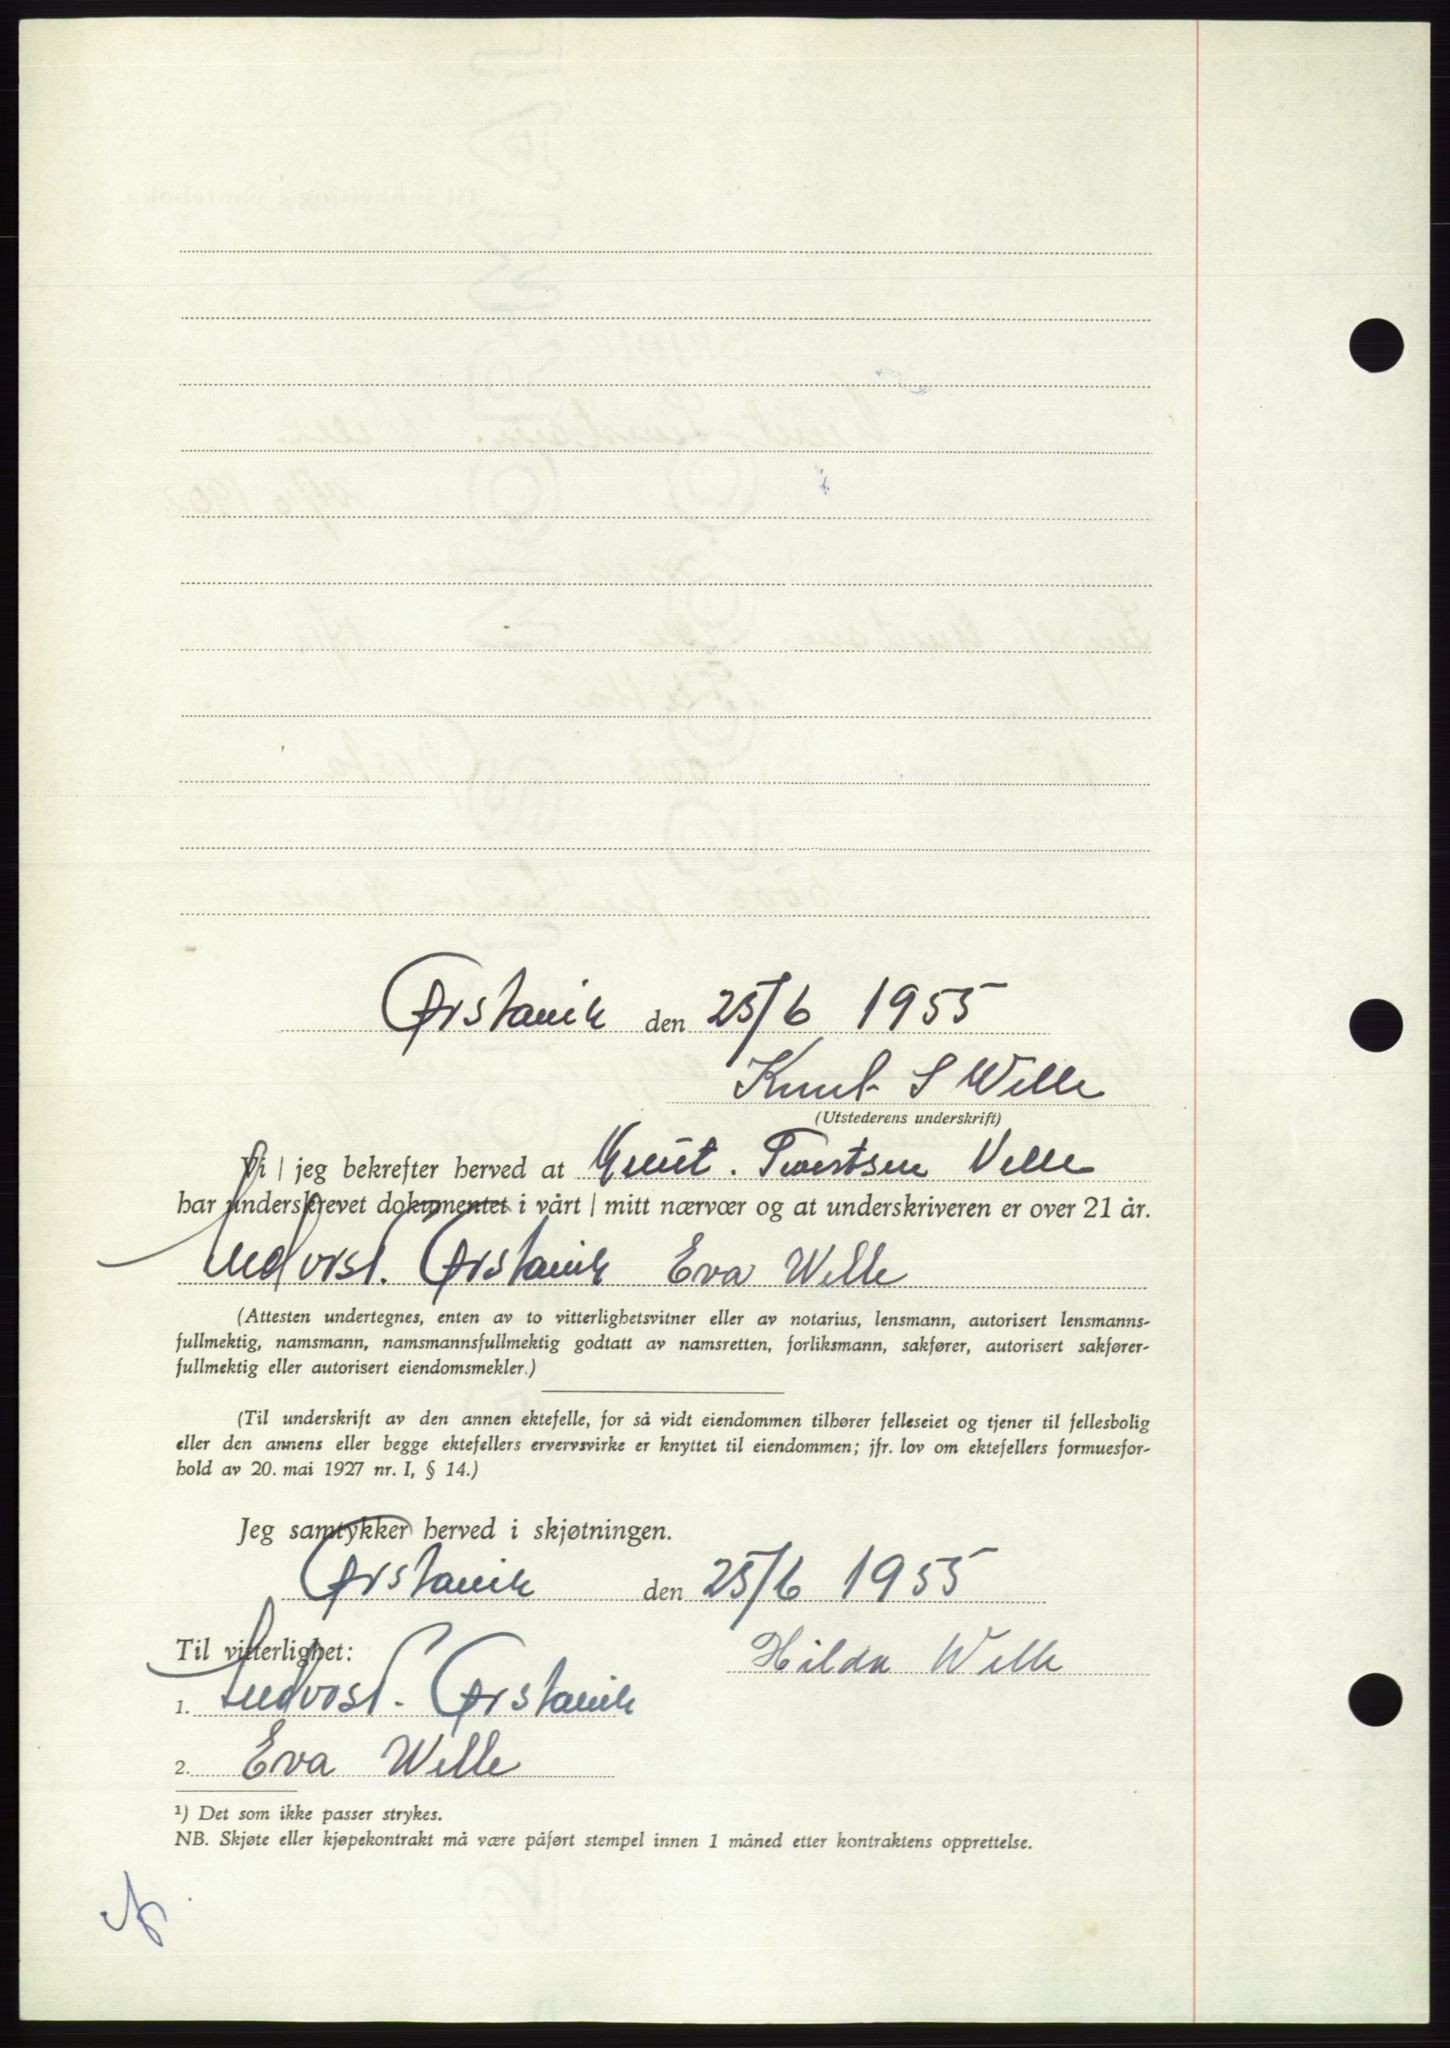 Ørstavik den 25/6 1955
Knut S Welle
(Utstederens underskrift)
Vi / jeg bekrefter herved at Knut . Sivertsen Velle
har underskrevet dokumentet i vårt / mitt nærvær og at underskriveren er over 21 år.
Ørstavik Eva Welle
(Attesten undertegnes, enten av to vitterlighetsvitner eller av notarius, lensmann, autorisert lensmanns-
fullmektig, namsmann, namsmannsfullmektig godtatt av namsretten, forliksmann, sakfører, autorisert sakfører-
fullmektig eller autorisert eiendomsmekler.)
(Til underskrift av den annen ektefelle, for så vidt eiendommen tilhører felleseiet og tjener til fellesbolig
eller den annens eller begge ektefellers ervervsvirke er knyttet til eiendommen; jfr. lov om ektefellers formuesfor-
hold av 20. mai 1927 nr. I, § 14.)
Jeg samtykker herved i skjøtningen.
Ørstavik den 25/6 1955
Til vitterlighet: Hilda Welle
1. Ørstavik
2. Eva Welle
¹) Det som ikke passer strykes.
NB. Skjøte eller kjøpekontrakt må være påført stempel innen 1 måned etter kontraktens opprettelse.